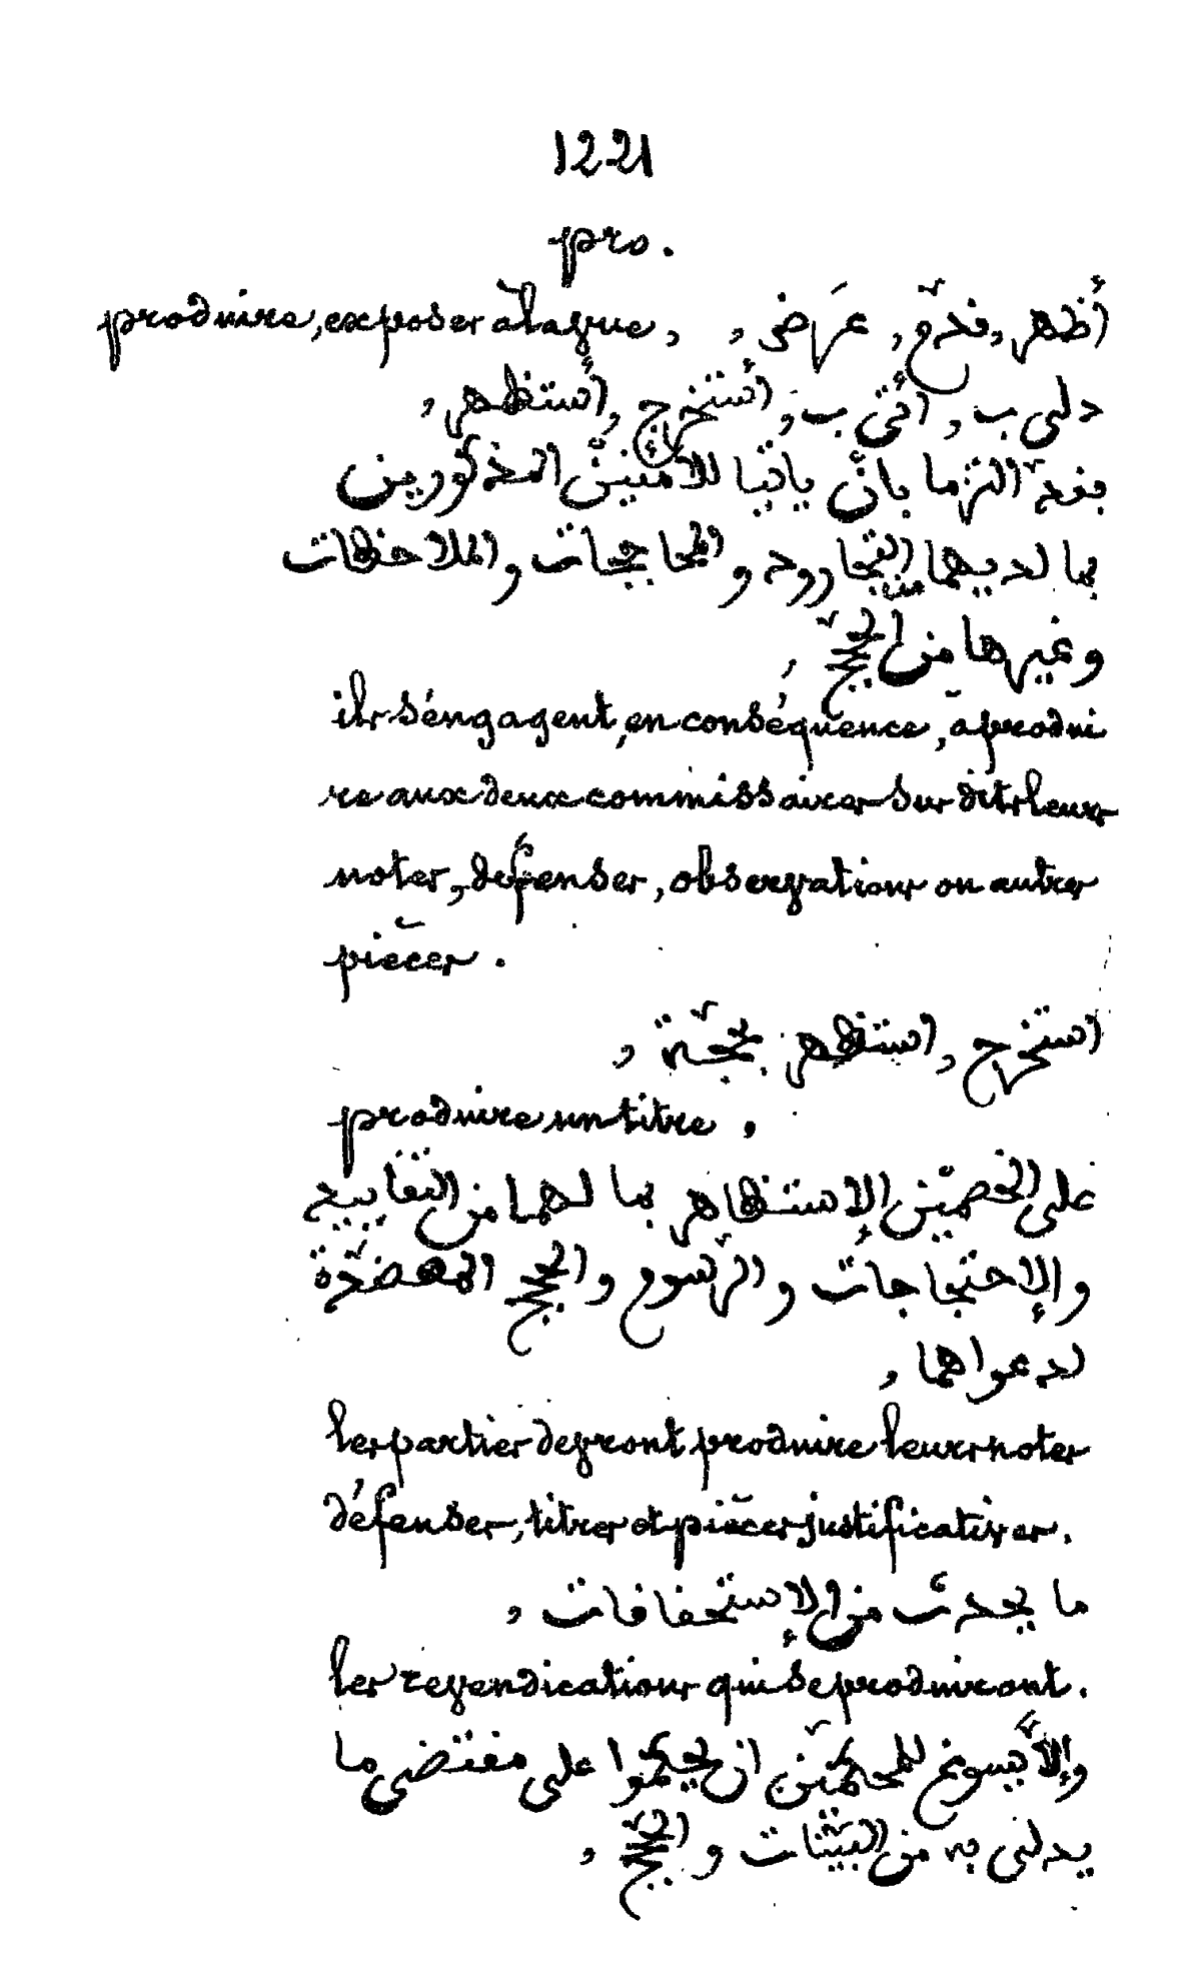 1221
pro.
produire, exposer à la vue, أظهر, قدّم, عرَض,
دلى ب, أتى ب, أستخرج, أستظهر,
فقد التزما بأن يأتيا للأمنين المذكورين
بما لديهما من التجارود والمحاججات والملاحظات
وغيرها من الحجج,
ils s'engagent, en conséquence, à produi
re aux deux commissaires sur dits leurs
notes, défenses, observations ou autres
pièces.
استخرج, استظهر بحجّة,
produire un titre,
على الخصمين الإستظهار بما لهما من التقاييد
والإحتجاجات والرّسوم والحجج المعضّدة
لدعواهما,
les parties devront produire leurs notes
défenses, titres et pièces justificatives.
ما يحدث من الإستحقاقات,
les revendications qui se produiront.
وإلاّ يسوغ للمحكّمين ان يحكموا على مقتضى ما
يدلى به من البيّنات والحجج,